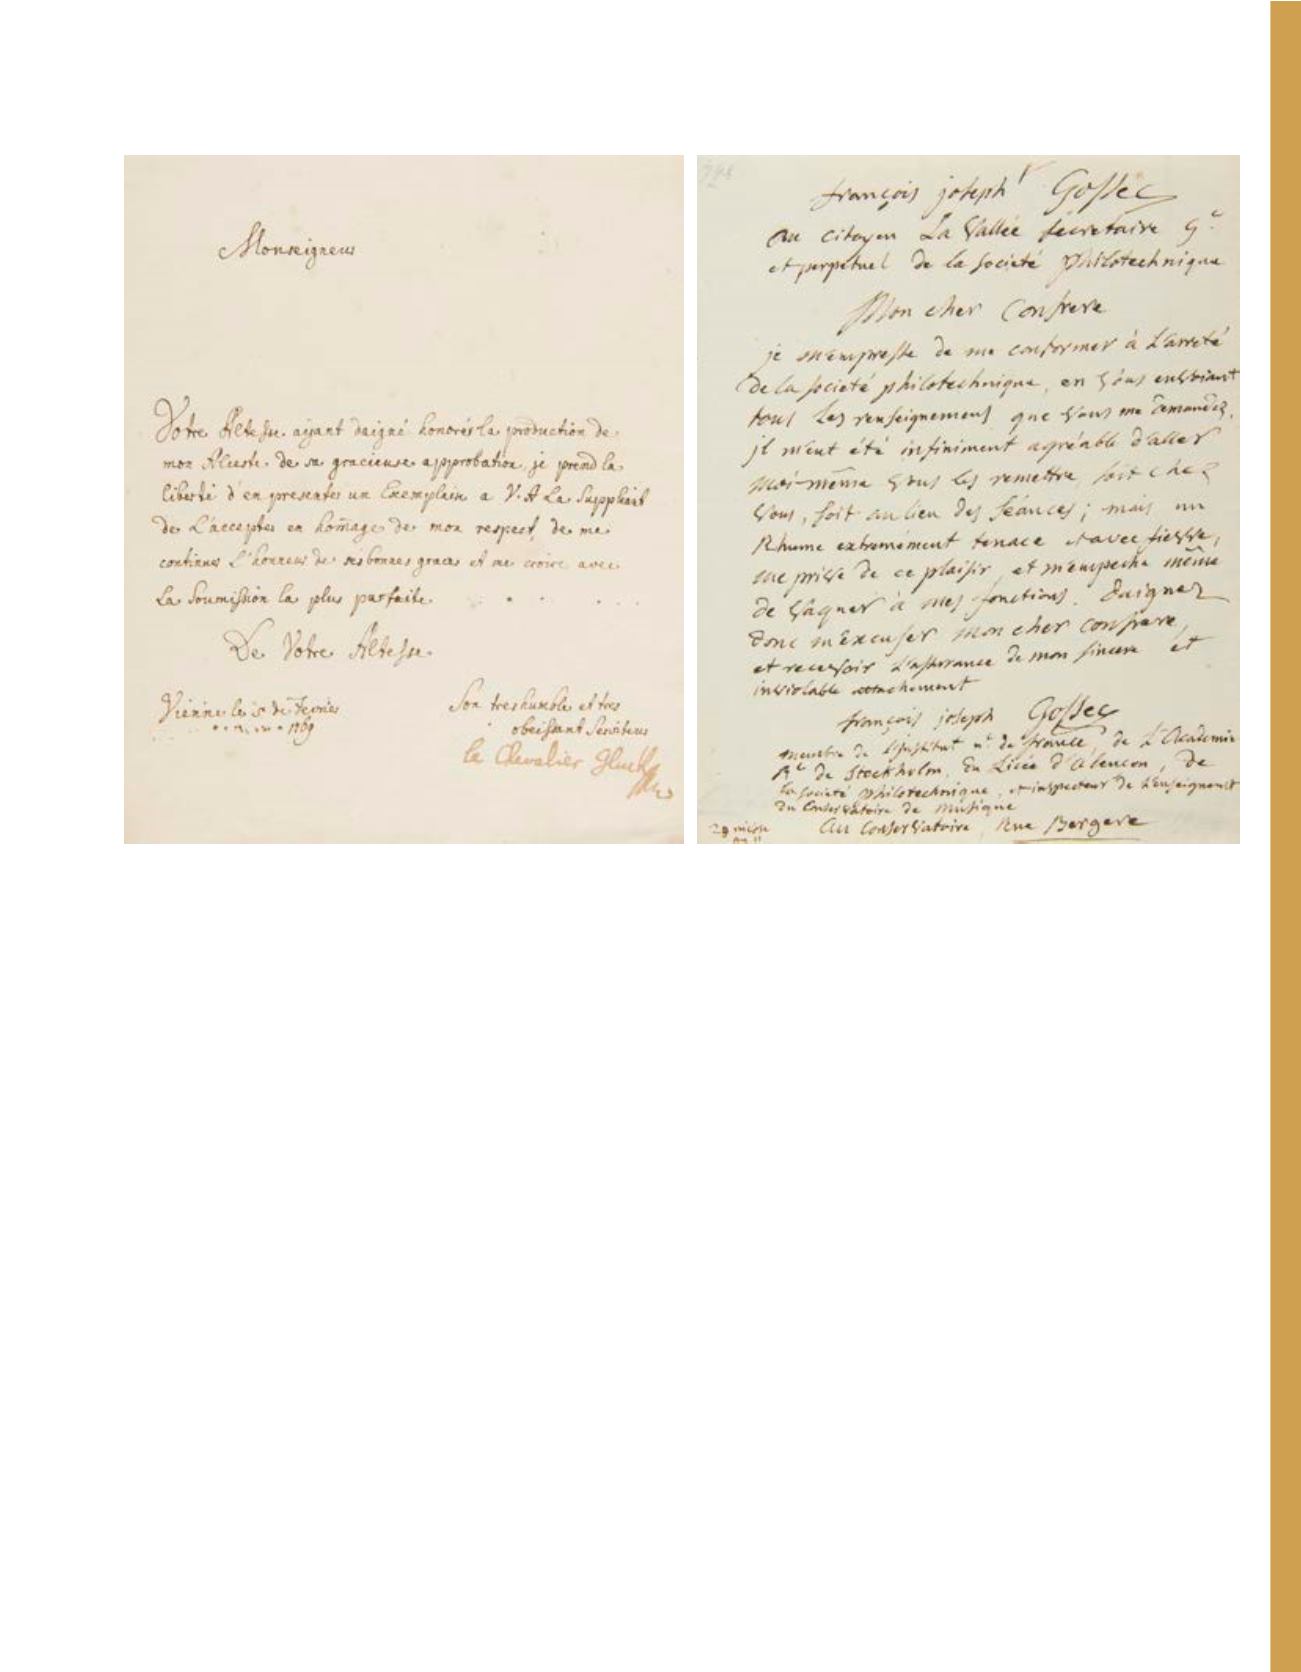 Monseigneur
Votre Altesse ayant daigné honorér la production de
mon Alceste de sa gracieuse approbation, je prend la
liberté d'en presenter un Exemplaire a V. A La Suppliant
de L'accepter en homage de mon respect, de me
continuer L'honneur de ses bonnes graces et me croire avec
La Soumission la plus parfaite
De Votre Altesse
Vienne le de Fevrier
1769
Son tres humble et tres
obeissant Serviteur
le Chevalier Gluck
françois joseph Gossec
Au citoyen La Vallée sécretaire G.
et perpetuel de la societé philotechnique
Mon cher Confrere
je m'empresse de me conformer à L'arreté
de la societé philotechnique, en vous envoiant
tous Les renseignemens que vous me demandez.
il m'eut été infiniment agréable d'aller
moi-même vous les remettre, soit chez
vous, soit au lieu des séances ; mais un
Rhume extremement tenace et avec fievre,
me prive de ce plaisir, et m'empeche même
de vaquer à mes fonctions. Daignez
donc m'Excuser mon cher confrere,
et recevoir L'assurance de mon sincere et
inviolable attachement
françois joseph Gossec
membre de L'institut n.l de france, de L'Academie
R.le de Stockholm, du Licée d'Alencon, de
La societé philotechnique, et inspecteur de L'enseignemt
du Conservatoire de musique
Au Conservatoire, Rue Bergere
29